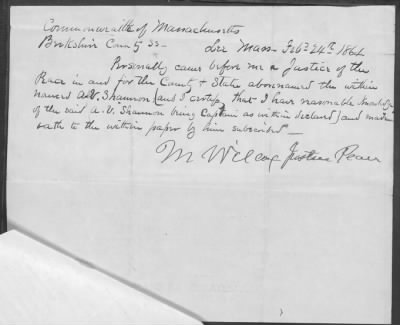 Commonwealth of Massachusetts
Berkshire County ss— Lee Mass— Feby 24th 1864
Personally came before me a Justice of the
Peace in and for the County & State abovenamed the within
named A.V. Shannon (and I certify that I have reasonable knowledge
of the said A.V. Shannon being Captain as within declared) and made
oath to the within paper by him subscribed—
M Wilcox Justice Peace